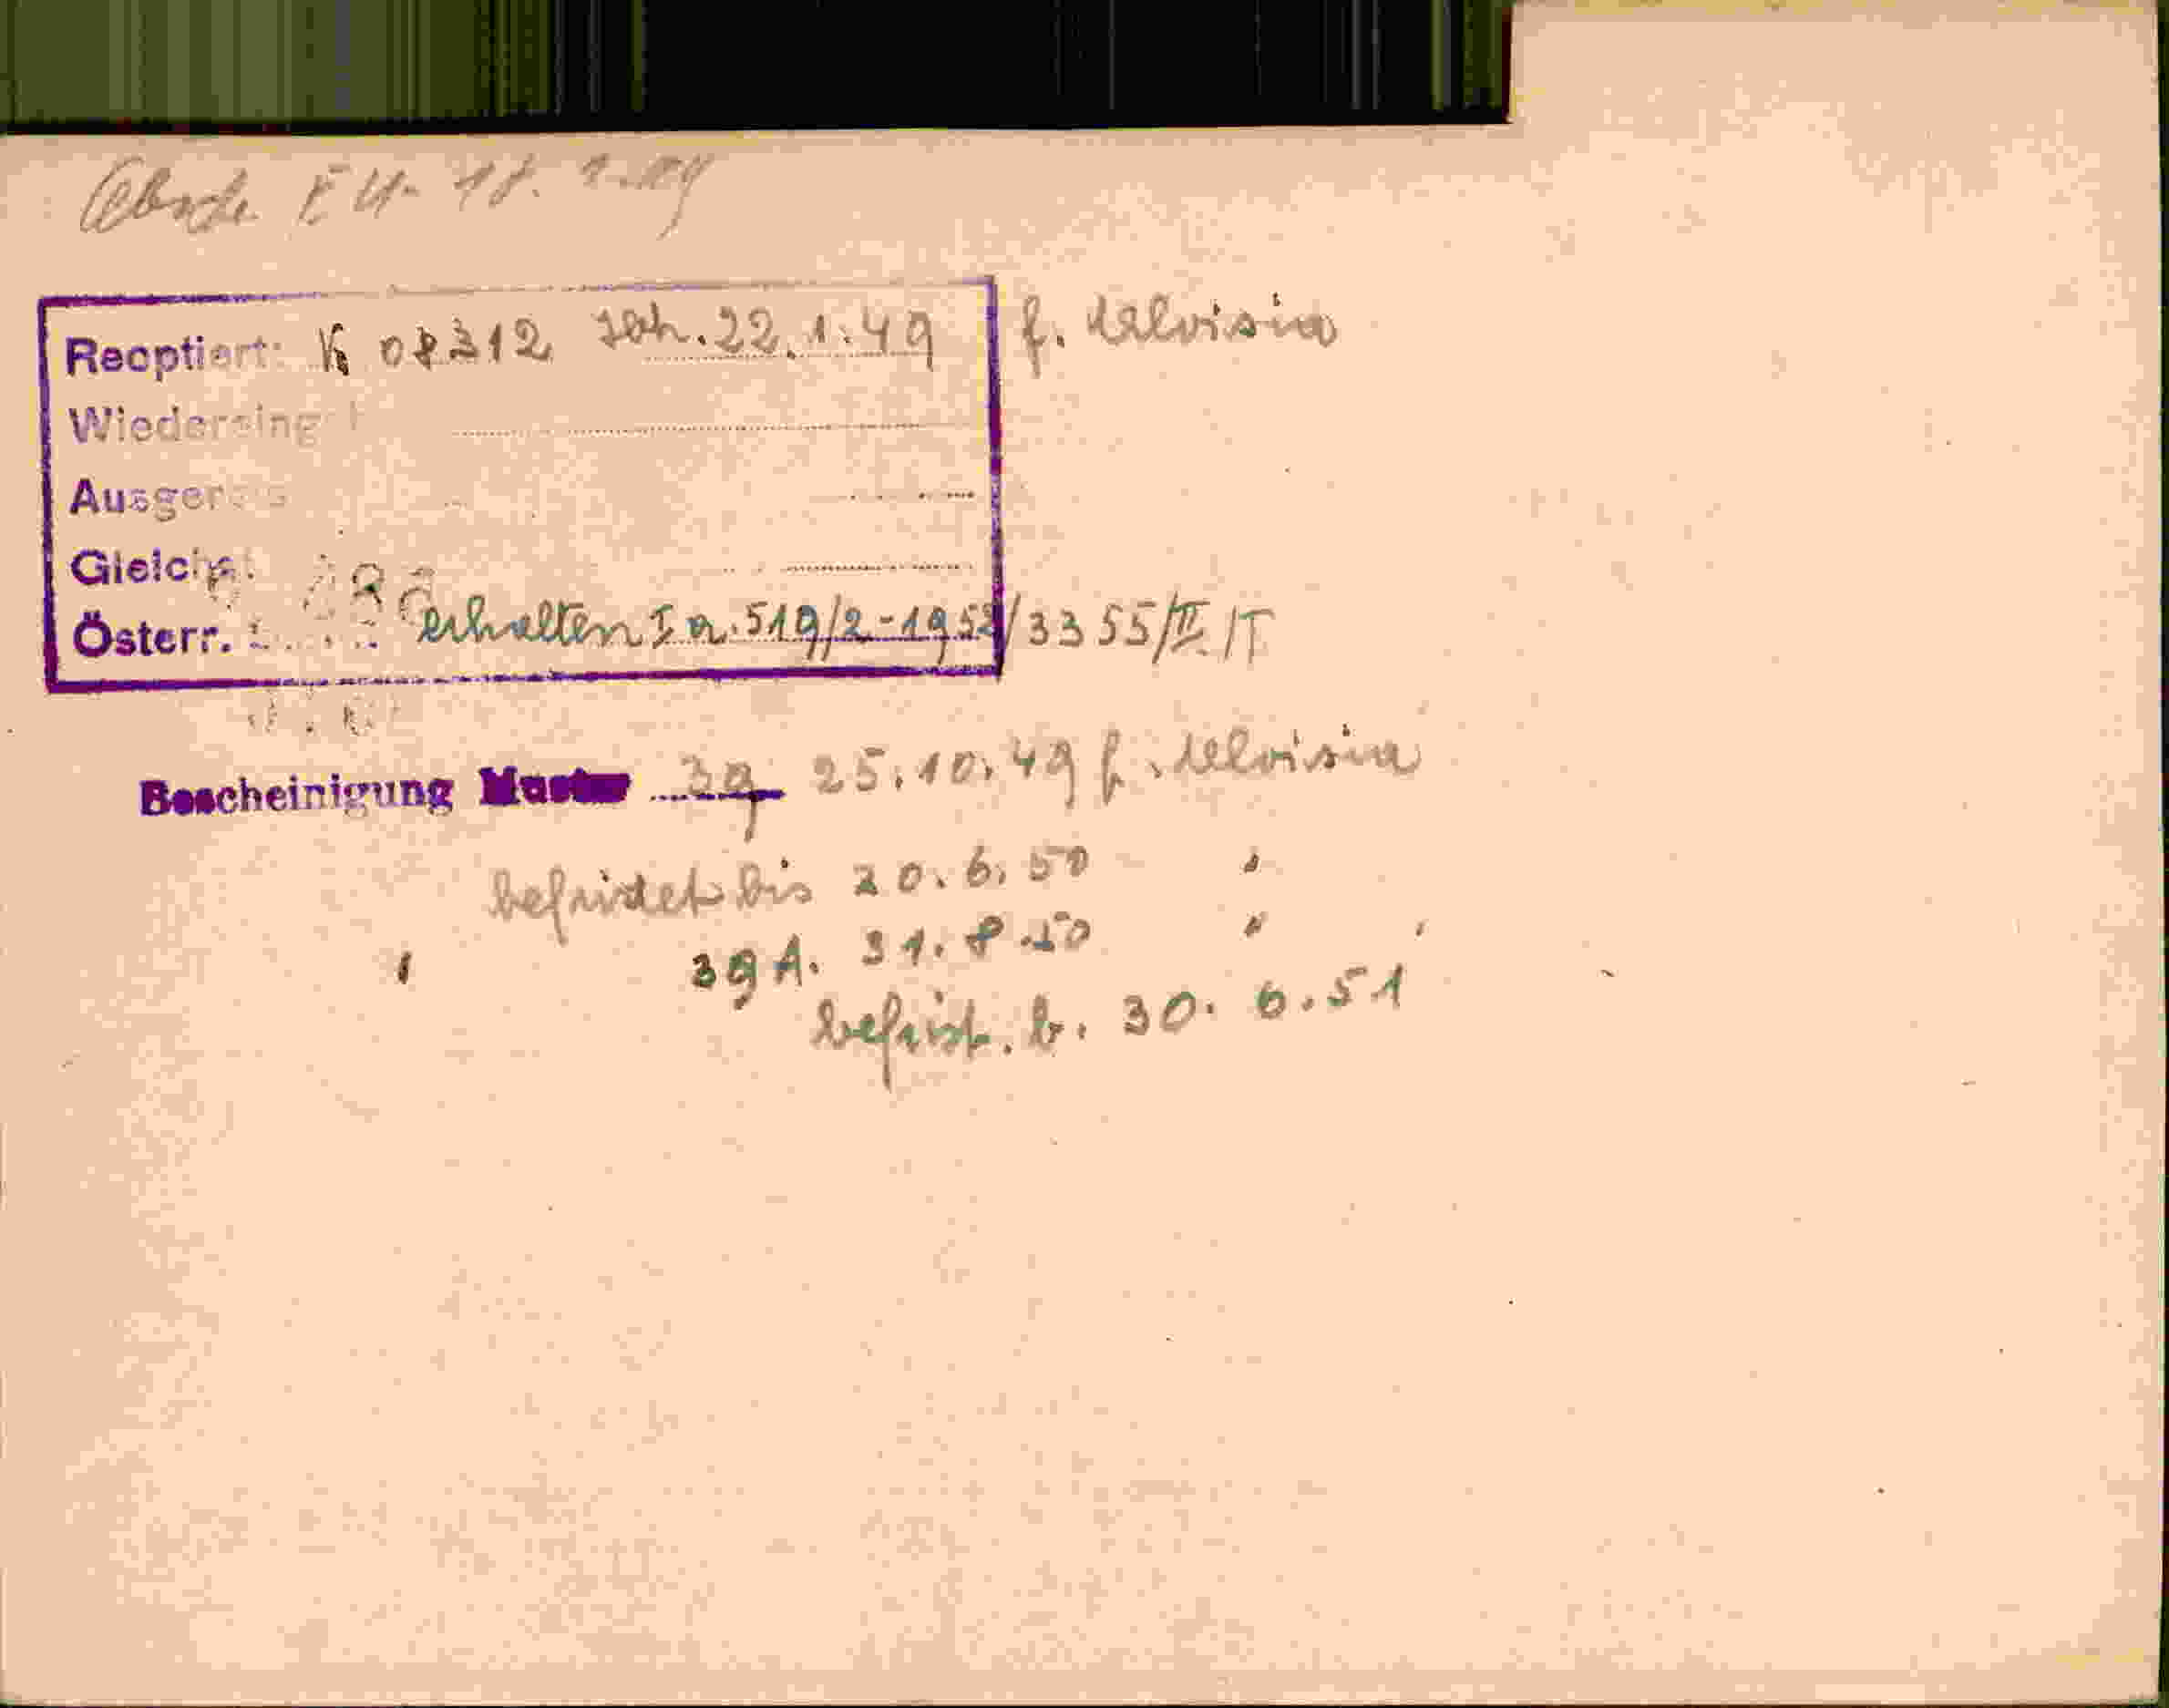 18.
Reoptiert: K 08312 22.1.49 f. Aloisia
Wiedereing
Ausger
Gleich
Österr. erhalten I a. 519/2-1952/3355/II/T
Bescheinigung Muster 39 25.10.49 f. Aloisia
befristet bis 20.6.50 "
" 39 A. 31.8.50 "
befrist. b. 30.6.51